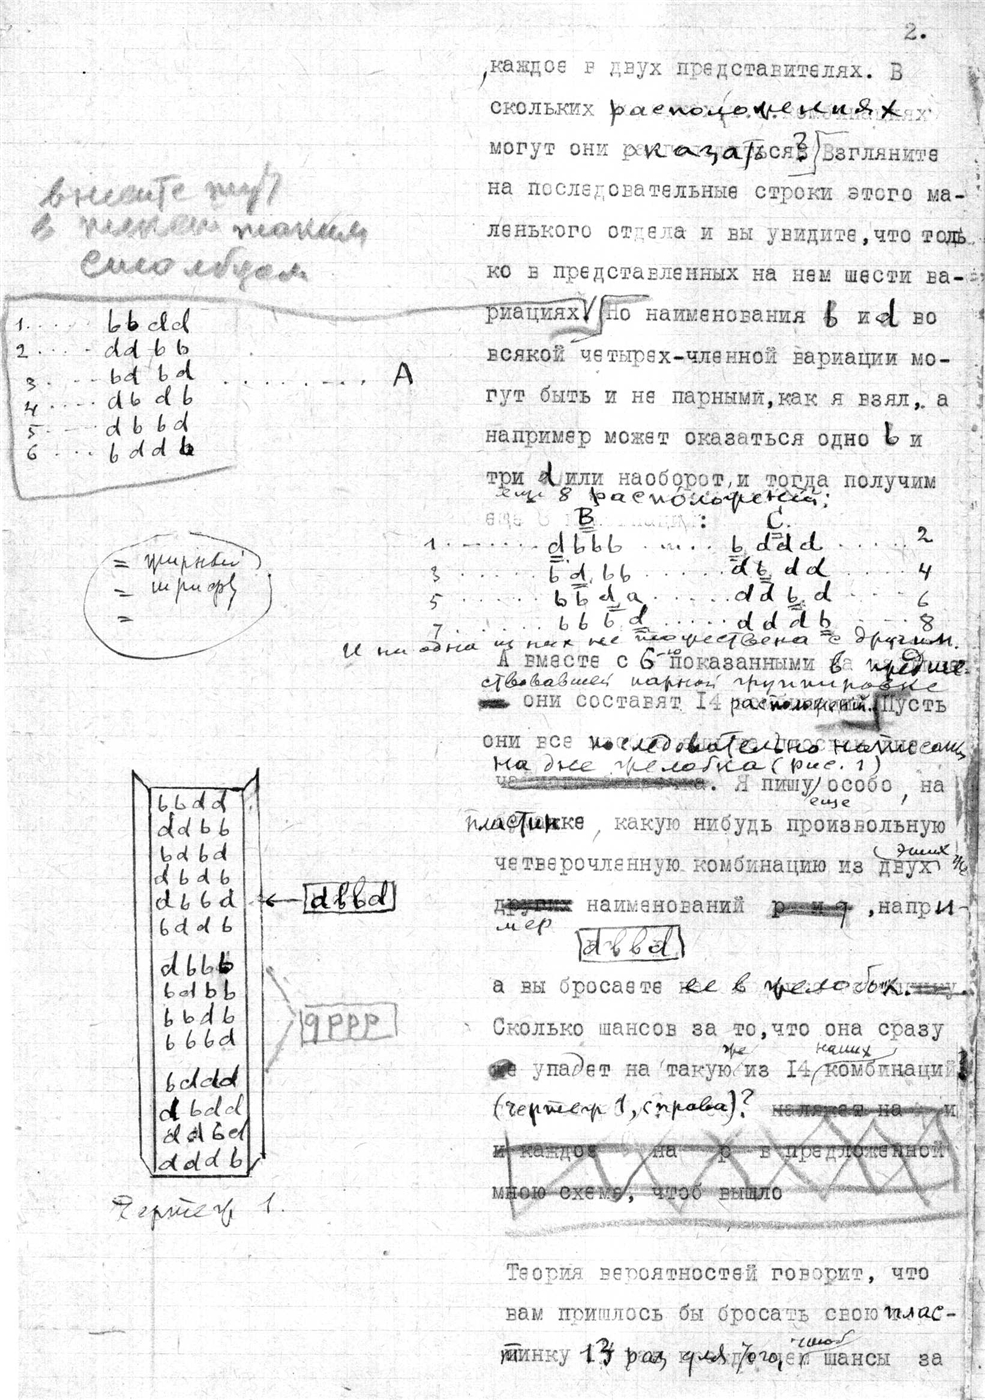 2.
,каждое в двух представителях. В
скольких расположениях
могут они оказаться? Взгляните
на последовательные строки этого ма-
ленького отдела и вы увидите, что толь
ко в представленных на нем шести ва-
риациях. Но наименования b и d во
всякой четырех-членной вариации мо-
гут быть и не парными, как я взял, а
например может оказаться одно b и
три d или наоборот, и тогда получим
еще 8 расположений:
в
столбцом
1..... bbdd
2..... ddbb
3..... bdbd ......... A
4..... dbdb
5..... dbbd
6..... bddb
= жирный
= шрифт
=
B C.
1....... dbbb ..... bddd ..... 2
3....... bdbb ...... dbdd ..... 4
5....... bbda ...... ddbd ..... 6
7....... bbbd ...... dddb ..... 8
И ни одна из них не тожественна с другим.
А вместе с 6-ю показанными в предше-
ствовавшей парной группировке
они составят 14 расположений. Пусть
они все последовательно написаны
на дне желобка (рис. 1)
Я пишу еще особо, на
пластинке, какую нибудь произвольную
четверочленную комбинацию из двух этих же
других наименований р и q, напри-
мер
dbbd
а вы бросаете ее в желобок.
Сколько шансов за то, что она сразу
упадет на такую же из 14 наших комбинаций
(чертеж 1, справа)? на и
и каждое на р в предложенной
мною схеме, чтоб вышло
bbdd
ddbb
bdbd
dbdb
dbbd ← dbbd
bddb
dbbb
bdbb
bbdb
bbbd
qppp
bddd
dbdd
ddbd
dddb
Чертеж 1.
Теория вероятностей говорит, что
вам пришлось бы бросать свою плас-
тинку раз для того, чтоб шансы за